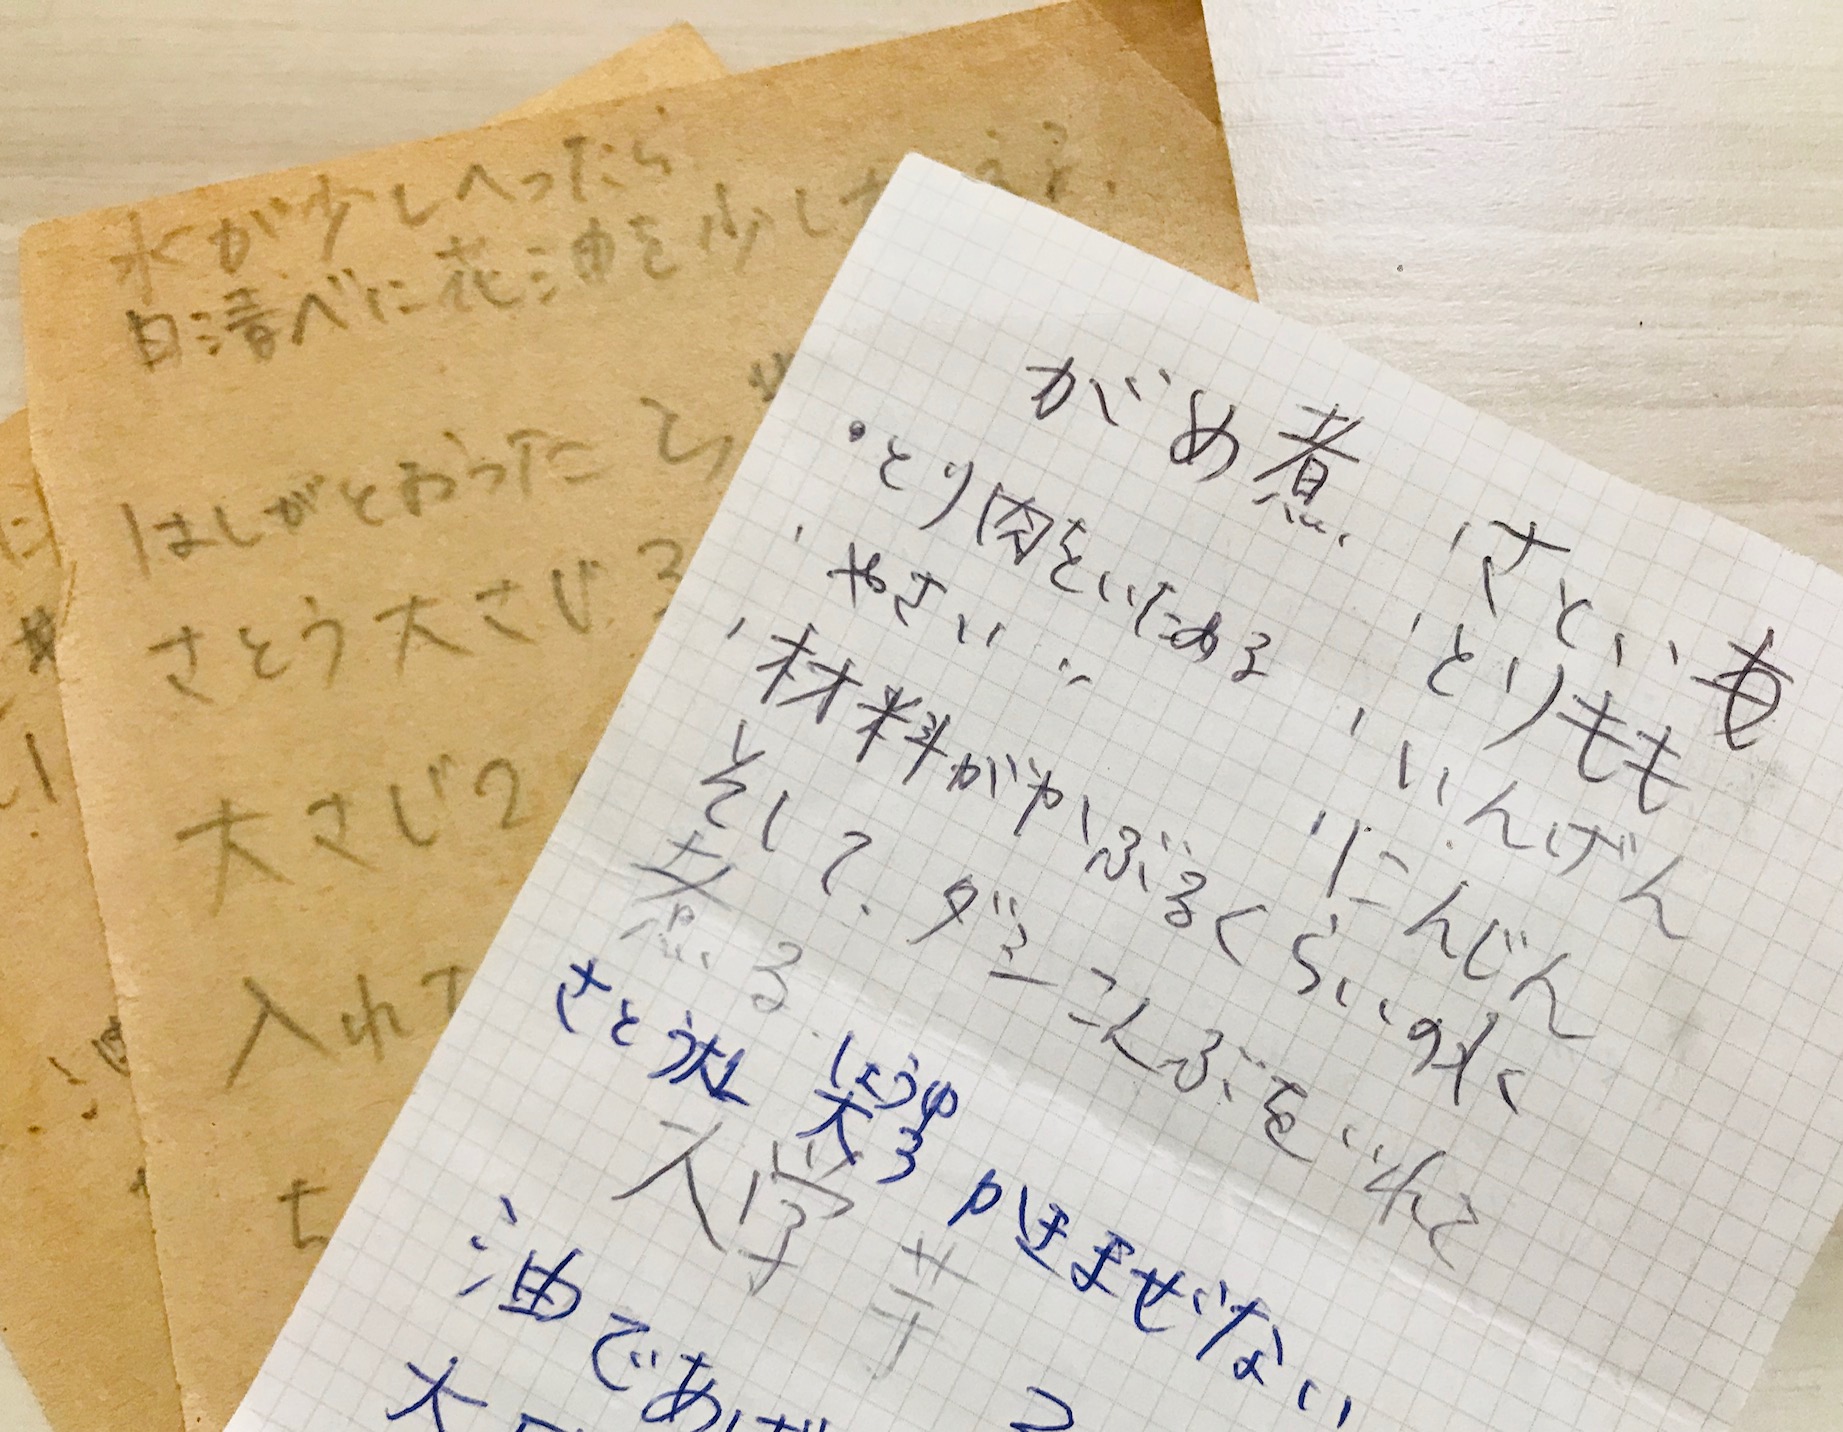 水が少しへったら
日清べに花油を少した
はしがとおったら
さとう大さじ3
大さじ2
入れて
がめ煮
・とり肉をいためる
、やさい 〃
、材料がかぶるくらいの水
そして、ダシこんぶをいれて
煮る
、さといも
、とりもも
、いんげん
、にんじん
さとう大1
しょうゆ
大3
かきまぜない
大学芋
油であげ